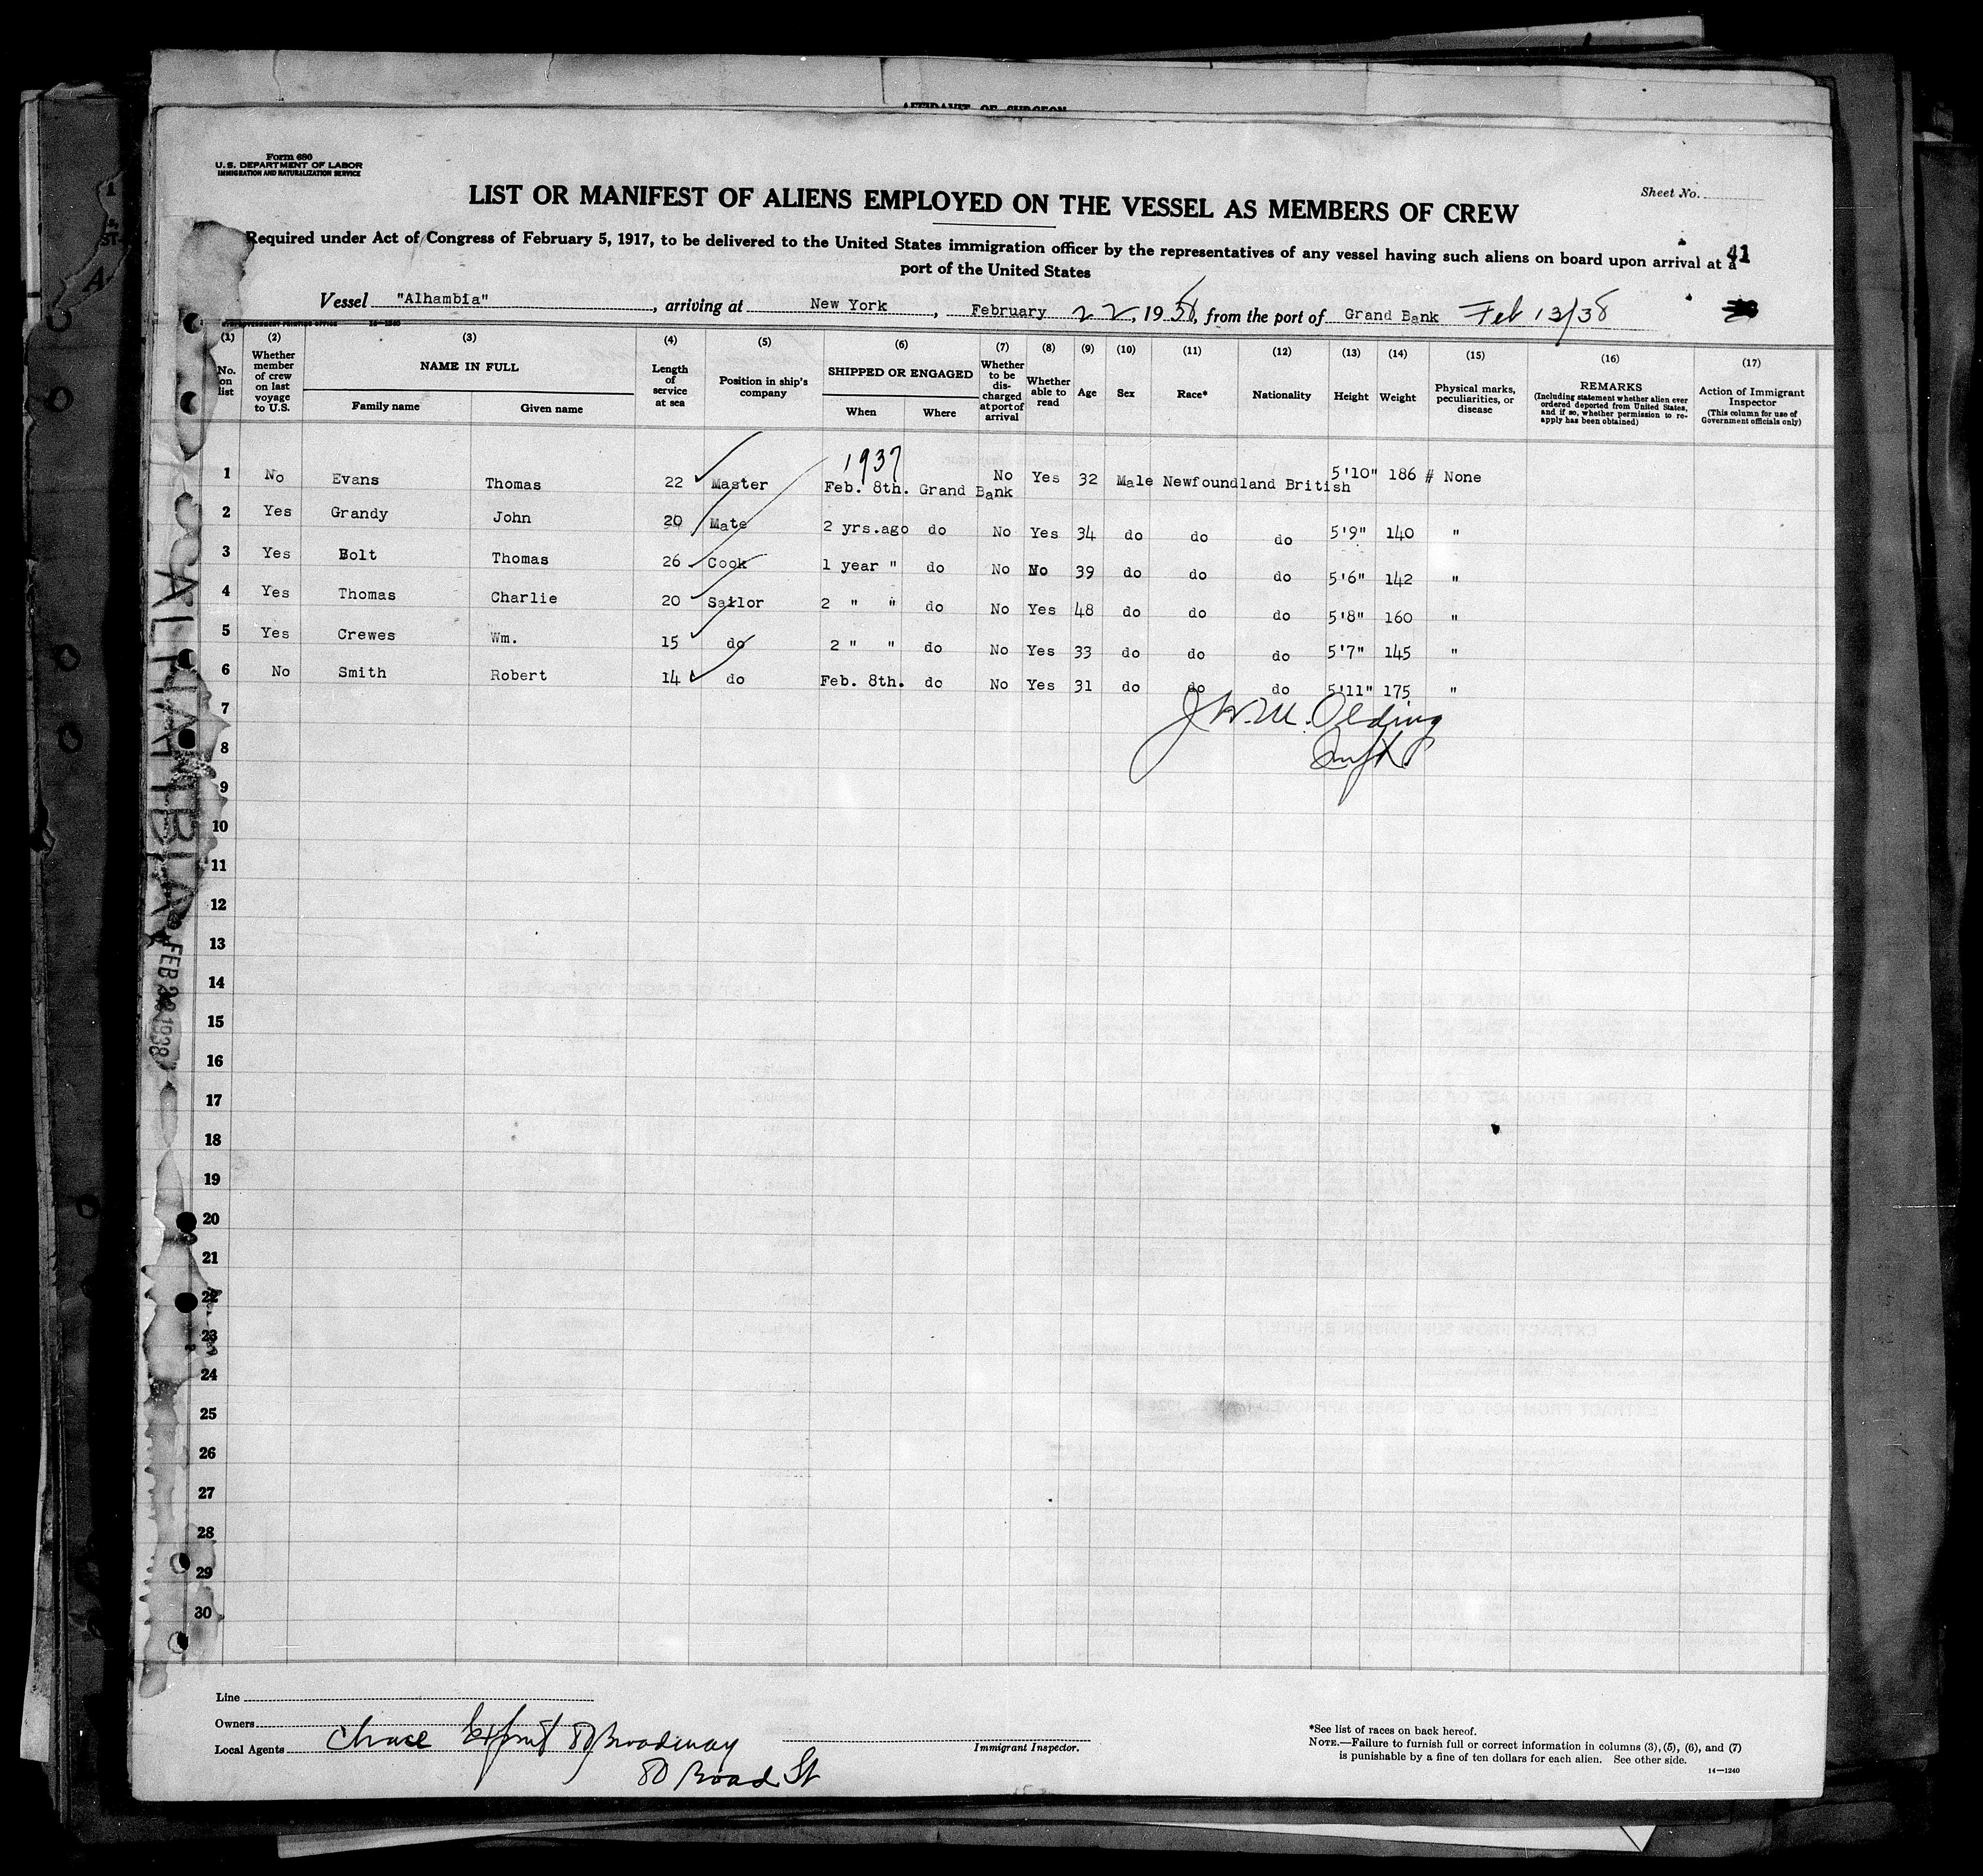 AFFIDAVIT OF SURGEON
Form 680
U. S. DEPARTMENT OF LABOR
IMMIGRATION AND NATURALIZATION SERVICE
Sheet No.
LIST OR MANIFEST OF ALIENS EMPLOYED ON THE VESSEL AS MEMBERS OF CREW
Required under Act of Congress of February 5, 1917, to be delivered to the United States immigration officer by the representatives of any vessel having such aliens on board upon arrival at a
port of the United States
41
Vessel "Alhambia", arriving at New York, February 22, 1938, from the port of Grand Bank Feb 13/38
(1) (2) (3) (4) (5) (6) (7) (8) (9) (10) (11) (12) (13) (14) (15) (16) (17)
No. on list
Whether member of crew on last voyage to U.S.
NAME IN FULL
Family name
Given name
Length of service at sea
Position in ship's company
SHIPPED OR ENGAGED
When
Where
Whether to be discharged at port of arrival
Whether able to read
Age
Sex
Race*
Nationality
Height
Weight
Physical marks, peculiarities, or disease
REMARKS
(Including statement whether alien ever ordered deported from United States, and if so, whether permission to reapply has been obtained)
Action of Immigrant Inspector
(This column for use of Government officials only)
1937
1 No Evans Thomas 22 Master Feb. 8th. Grand Bank No Yes 32 Male Newfoundland British 5'10" 186 # None
2 Yes Grandy John 20 Mate 2 yrs.ago do No Yes 34 do do do 5'9" 140 "
3 Yes Bolt Thomas 26 Cook 1 year " do No No 39 do do do 5'6" 142 "
4 Yes Thomas Charlie 20 Sailor 2 " " do No Yes 48 do do do 5'8" 160 "
5 Yes Crewes Wm. 15 do 2 " " do No Yes 33 do do do 5'7" 145 "
6 No Smith Robert 14 do Feb. 8th. do No Yes 31 do do do 5'11" 175 "
J.W.M. Olding
7
8
9
10
11
12
13
14
15
16
17
18
19
20
21
22
23
24
25
26
27
28
29
30
ALHAMBIA
FEB 22 1938
Line
Owners
Local Agents Chase Export 80 Broadway
80 Broad St
Immigrant Inspector.
*See list of races on back hereof.
NOTE.—Failure to furnish full or correct information in columns (3), (5), (6), and (7)
is punishable by a fine of ten dollars for each alien. See other side.
14—1240